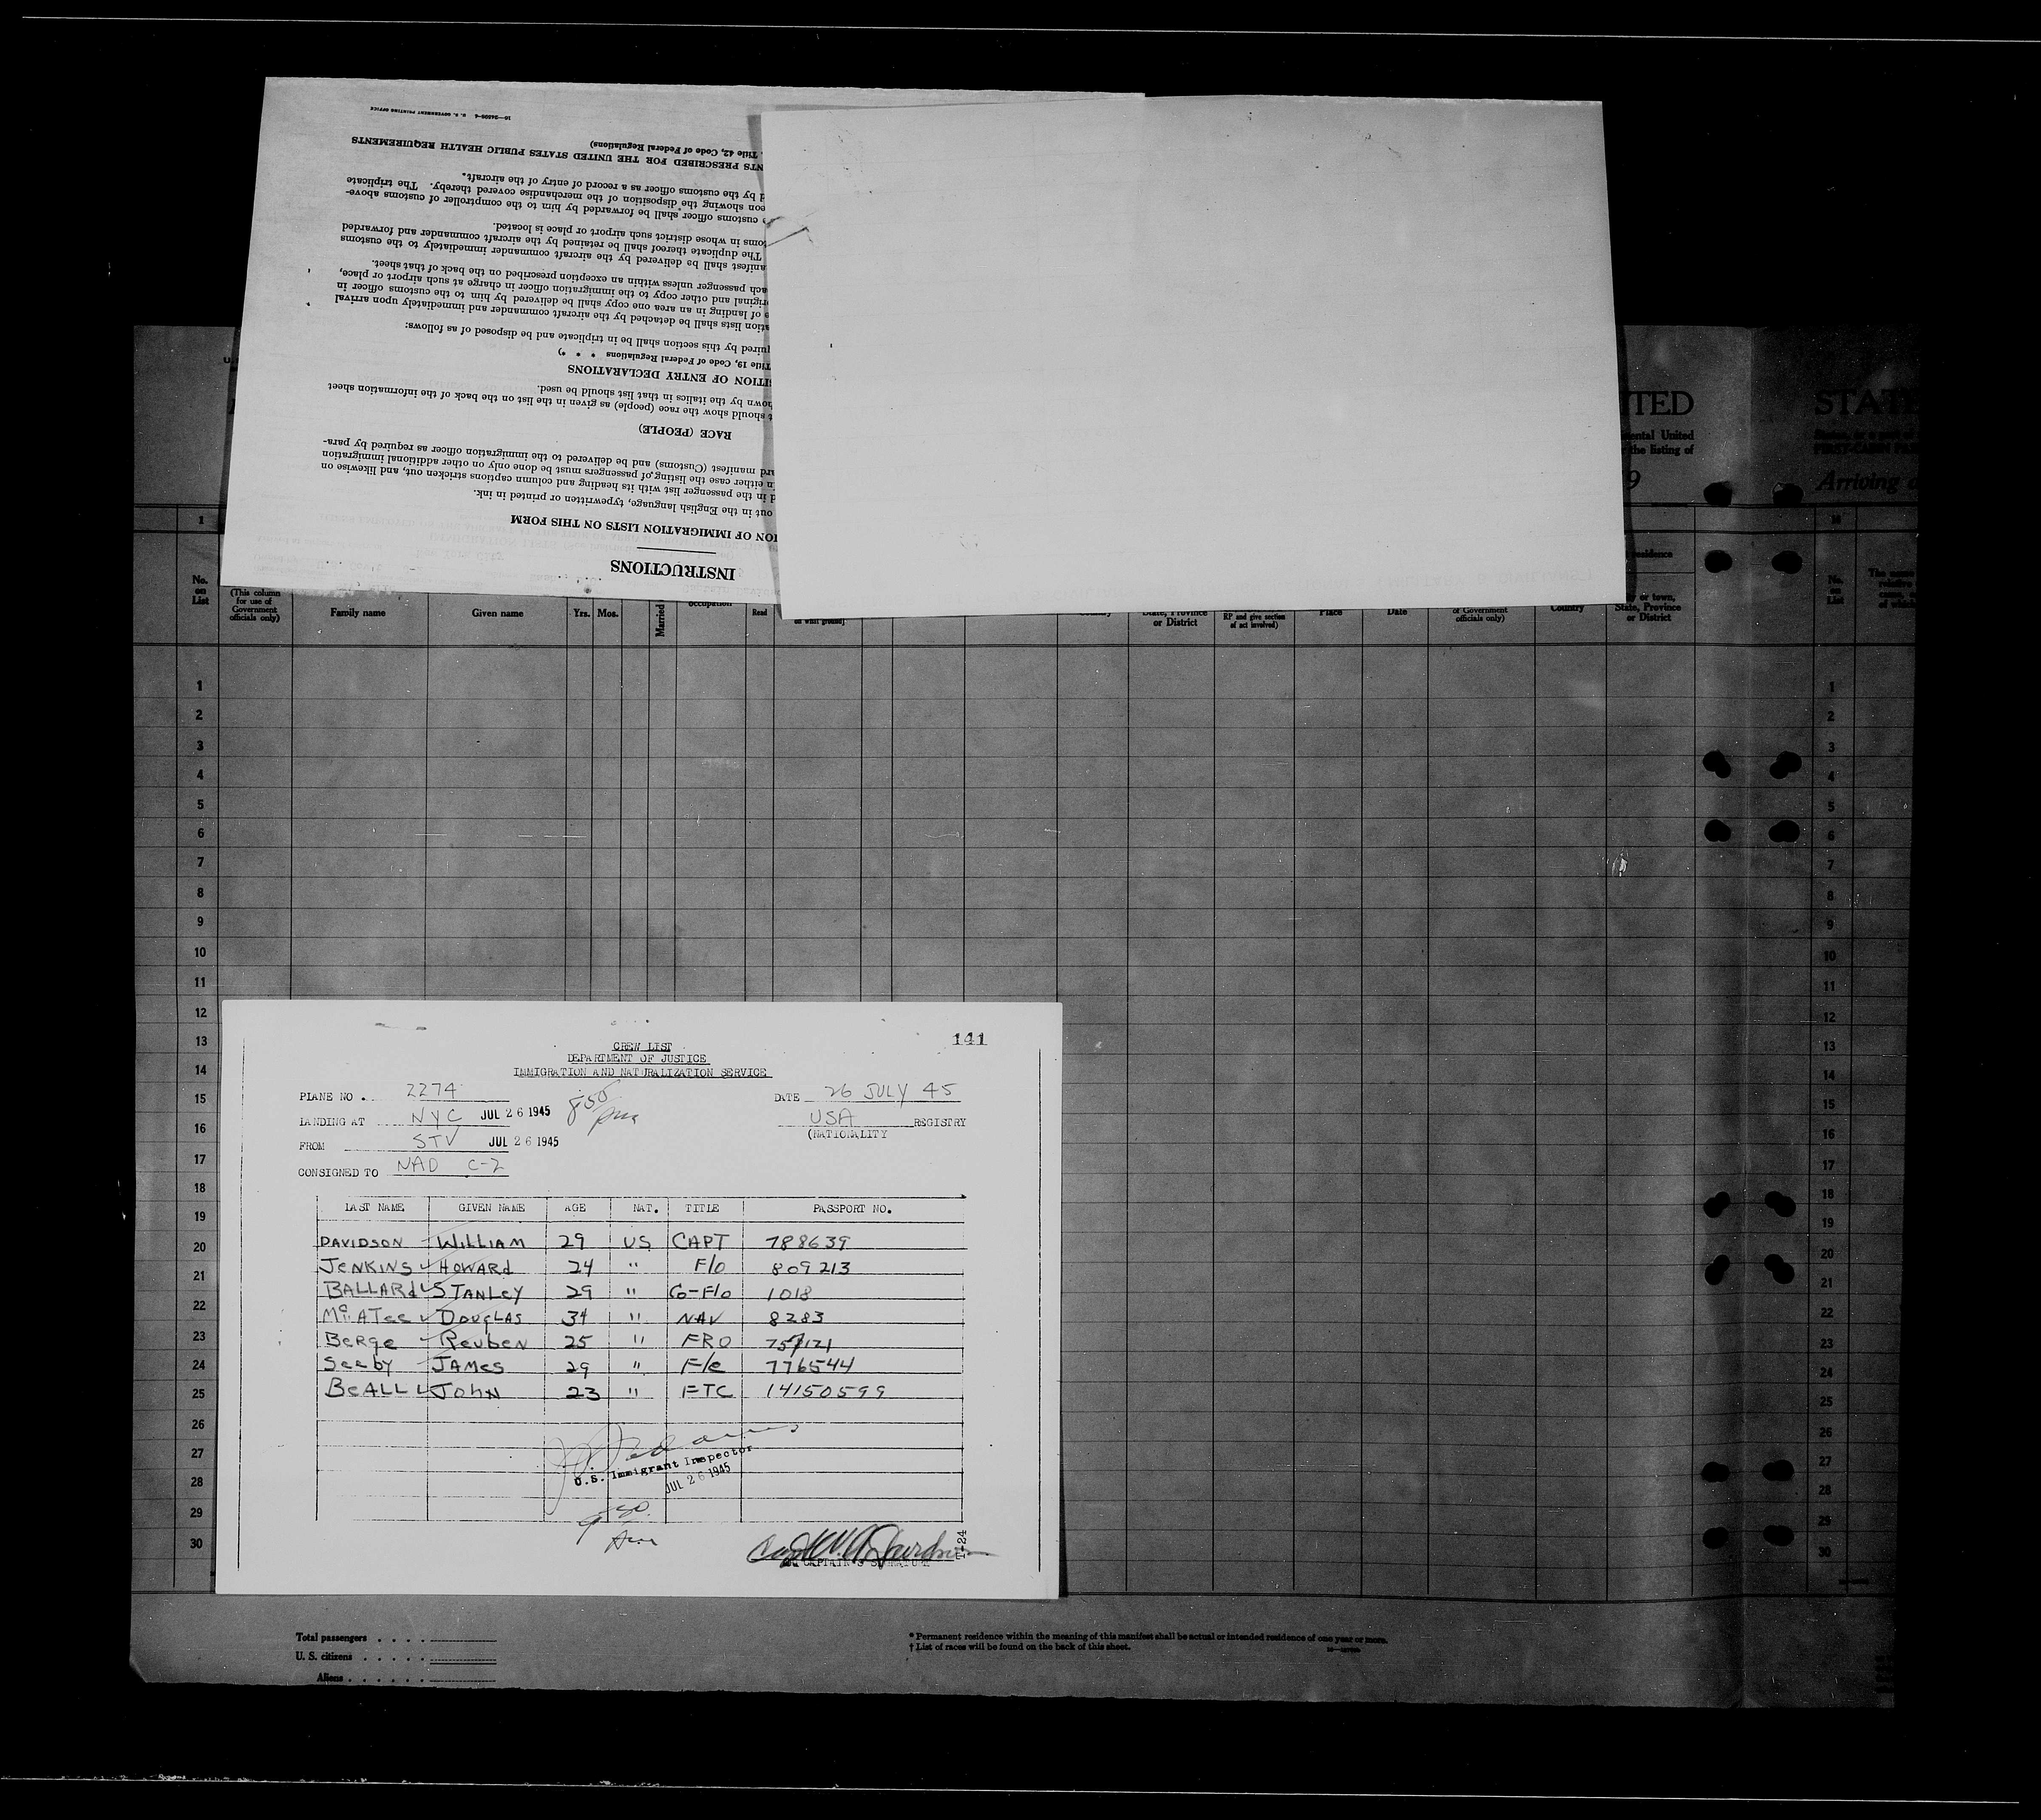 10—24509-4 U. S. GOVERNMENT PRINTING OFFICE
Title 42, Code of Federal Regulations)
NTS PRESCRIBED FOR THE UNITED STATES PUBLIC HEALTH REQUIREMENTS
d by the customs officer as a record of entry of the aircraft.
eon showing the disposition of the merchandise covered thereby. The triplicate
customs officer shall be forwarded by him to the comptroller of customs above-
toms in whose district such airport or place is located.
The duplicate thereof shall be retained by the aircraft commander and forwarded
anifest shall be delivered by the aircraft commander immediately to the customs
ach passenger unless within an exception prescribed on the back of that sheet.
riginal and other copy to the immigration officer in charge at such airport or place,
e of landing in an area one copy shall be delivered by him to the customs officer in
ation lists shall be detached by the aircraft commander and immediately upon arrival
quired by this section shall be in triplicate and be disposed of as follows:
Title 19, Code of Federal Regulations * * *)
ITION OF ENTRY DECLARATIONS
hown by the italics in that list should be used.
t should show the race (people) as given in the list on the back of the information sheet
RACE (PEOPLE)
ard manifest (Customs) and be delivered to the immigration officer as required by para-
n either case the listing of passengers must be done only on other additional immigration
d in the passenger list with its heading and column captions stricken out, and likewise on
out in the English language, typewritten or printed in ink.
ION OF IMMIGRATION LISTS ON THIS FORM
INSTRUCTIONS
ITED STAT
ental United
the listing of
9 Arriving
1
No. on List
(This column for use of Government officials only)
Family name
Given name
Yrs. Mos.
Married
occupation
Read
on what ground]
State, Province or District
RP and give section of act involved)
Place
Date
of Government officials only)
Country
residence
or town, State, Province or District
No. on List
1 1
2 2
3 3
4 4
5 5
6 6
7 7
8 8
9 9
10 10
11 11
12 12
13 13
14 14
15 15
16 16
17 17
18 18
19 19
20 20
21 21
22 22
23 23
24 24
25 25
26 26
27 27
28 28
29 29
30 30
141
CREW LIST
DEPARTMENT OF JUSTICE
IMMIGRATION AND NATURALIZATION SERVICE
PLANE NO. 2274 DATE 26 JULY 45
LANDING AT NYC JUL 26 1945 850 pm USA REGISTRY
(NATIONALITY
FROM STV JUL 26 1945
CONSIGNED TO NAD C-2
LAST NAME GIVEN NAME AGE NAT. TITLE PASSPORT NO.
DAVIDSON WILLIAM 29 US CAPT 788639
JENKINS HOWARD 24 " F/O 809213
BALLARD STANLEY 29 " CO-F/O 1018
McATEE DOUGLAS 34 " NAV 8283
BERGE REUBEN 25 " FRO 757121
SEEBY JAMES 29 " F/E 776544
BEALL JOHN 23 " FTC 14150599
U.S. Immigrant Inspector
JUL 26 1945
CAPTAIN'S SIGNATURE
T-24
Total passengers
U. S. citizens
Aliens
* Permanent residence within the meaning of this manifest shall be actual or intended residence of one year or more.
† List of races will be found on the back of this sheet.